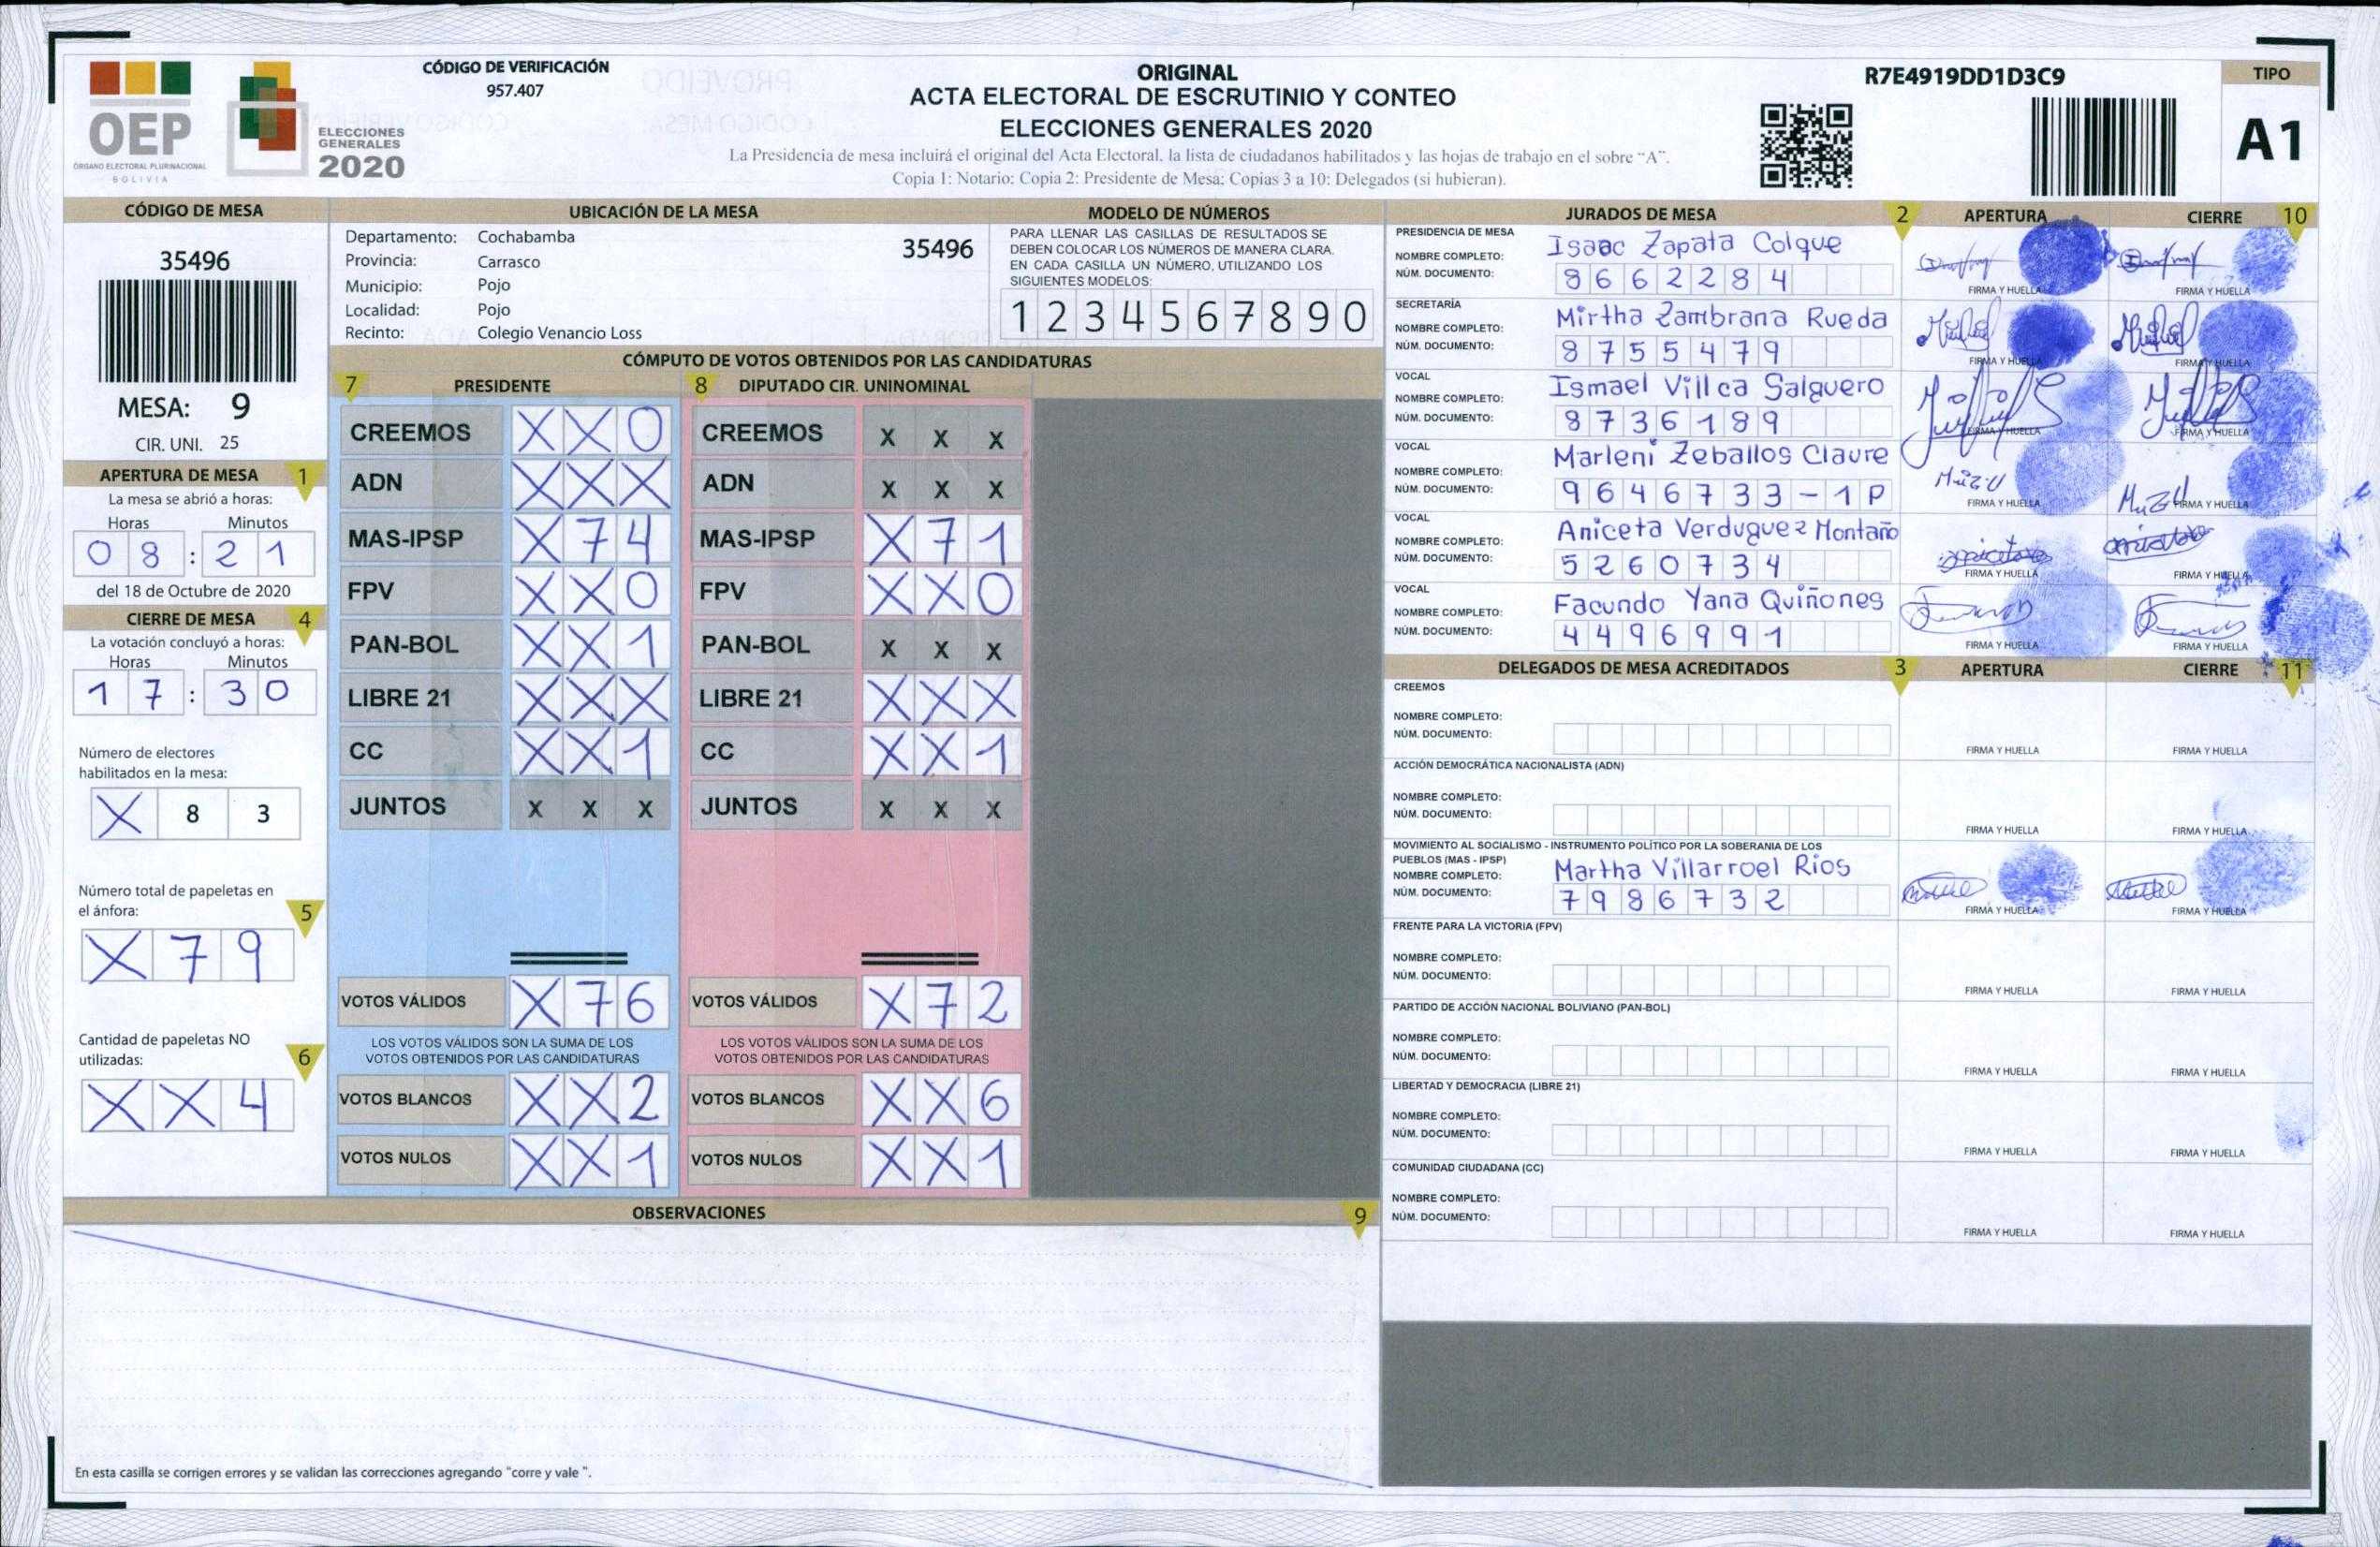 OEP
ÓRGANO ELECTORAL PLURINACIONAL
BOLIVIA
ELECCIONES
GENERALES
2020
CÓDIGO DE VERIFICACIÓN
957.407
ORIGINAL
ACTA ELECTORAL DE ESCRUTINIO Y CONTEO
ELECCIONES GENERALES 2020
La Presidencia de mesa incluirá el original del Acta Electoral, la lista de ciudadanos habilitados y las hojas de trabajo en el sobre "A".
Copia 1: Notario; Copia 2: Presidente de Mesa; Copias 3 a 10: Delegados (si hubieran).
R7E4919DD1D3C9
TIPO
A1
CÓDIGO DE MESA
35496
MESA: 9
CIR. UNI. 25
APERTURA DE MESA 1
La mesa se abrió a horas:
Horas Minutos
08:21
del 18 de Octubre de 2020
CIERRE DE MESA 4
La votación concluyó a horas:
Horas Minutos
17:30
Número de electores
habilitados en la mesa:
X 8 3
Número total de papeletas en
el ánfora: 5
X 7 9
Cantidad de papeletas NO
utilizadas: 6
X X 4
UBICACIÓN DE LA MESA
Departamento: Cochabamba 35496
Provincia: Carrasco
Municipio: Pojo
Localidad: Pojo
Recinto: Colegio Venancio Loss
MODELO DE NÚMEROS
PARA LLENAR LAS CASILLAS DE RESULTADOS SE
DEBEN COLOCAR LOS NÚMEROS DE MANERA CLARA.
EN CADA CASILLA UN NÚMERO, UTILIZANDO LOS
SIGUIENTES MODELOS:
1 2 3 4 5 6 7 8 9 0
CÓMPUTO DE VOTOS OBTENIDOS POR LAS CANDIDATURAS
7 PRESIDENTE 8 DIPUTADO CIR. UNINOMINAL
CREEMOS X X 0 CREEMOS X X X
ADN X X X ADN X X X
MAS-IPSP X 7 4 MAS-IPSP X 7 1
FPV X X 0 FPV X X 0
PAN-BOL X X 1 PAN-BOL X X X
LIBRE 21 X X X LIBRE 21 X X X
CC X X 1 CC X X 1
JUNTOS X X X JUNTOS X X X
VOTOS VÁLIDOS X 7 6 VOTOS VÁLIDOS X 7 2
LOS VOTOS VÁLIDOS SON LA SUMA DE LOS LOS VOTOS VÁLIDOS SON LA SUMA DE LOS
VOTOS OBTENIDOS POR LAS CANDIDATURAS VOTOS OBTENIDOS POR LAS CANDIDATURAS
VOTOS BLANCOS X X 2 VOTOS BLANCOS X X 6
VOTOS NULOS X X 1 VOTOS NULOS X X 1
OBSERVACIONES 9
En esta casilla se corrigen errores y se validan las correcciones agregando "corre y vale ".
JURADOS DE MESA 2 APERTURA CIERRE 10
PRESIDENCIA DE MESA
NOMBRE COMPLETO: Isaac Zapata Colque
NÚM. DOCUMENTO: 8662284
FIRMA Y HUELLA FIRMA Y HUELLA
SECRETARÍA
NOMBRE COMPLETO: Mirtha Zambrana Rueda
NÚM. DOCUMENTO: 8755479
FIRMA Y HUELLA FIRMA Y HUELLA
VOCAL
NOMBRE COMPLETO: Ismael Villca Salguero
NÚM. DOCUMENTO: 8736189
FIRMA Y HUELLA FIRMA Y HUELLA
VOCAL
NOMBRE COMPLETO: Marleni Zeballos Claure
NÚM. DOCUMENTO: 9646733-1P
FIRMA Y HUELLA FIRMA Y HUELLA
VOCAL
NOMBRE COMPLETO: Aniceta Verduguez Montaño
NÚM. DOCUMENTO: 5260734
FIRMA Y HUELLA FIRMA Y HUELLA
VOCAL
NOMBRE COMPLETO: Facundo Yana Quiñones
NÚM. DOCUMENTO: 4496991
FIRMA Y HUELLA FIRMA Y HUELLA
DELEGADOS DE MESA ACREDITADOS 3 APERTURA CIERRE 11
CREEMOS
NOMBRE COMPLETO:
NÚM. DOCUMENTO:
FIRMA Y HUELLA FIRMA Y HUELLA
ACCIÓN DEMOCRÁTICA NACIONALISTA (ADN)
NOMBRE COMPLETO:
NÚM. DOCUMENTO:
FIRMA Y HUELLA FIRMA Y HUELLA
MOVIMIENTO AL SOCIALISMO - INSTRUMENTO POLÍTICO POR LA SOBERANIA DE LOS
PUEBLOS (MAS - IPSP)
NOMBRE COMPLETO: Martha Villarroel Rios
NÚM. DOCUMENTO: 7986732
FIRMA Y HUELLA FIRMA Y HUELLA
FRENTE PARA LA VICTORIA (FPV)
NOMBRE COMPLETO:
NÚM. DOCUMENTO:
FIRMA Y HUELLA FIRMA Y HUELLA
PARTIDO DE ACCIÓN NACIONAL BOLIVIANO (PAN-BOL)
NOMBRE COMPLETO:
NÚM. DOCUMENTO:
FIRMA Y HUELLA FIRMA Y HUELLA
LIBERTAD Y DEMOCRACIA (LIBRE 21)
NOMBRE COMPLETO:
NÚM. DOCUMENTO:
FIRMA Y HUELLA FIRMA Y HUELLA
COMUNIDAD CIUDADANA (CC)
NOMBRE COMPLETO:
NÚM. DOCUMENTO:
FIRMA Y HUELLA FIRMA Y HUELLA